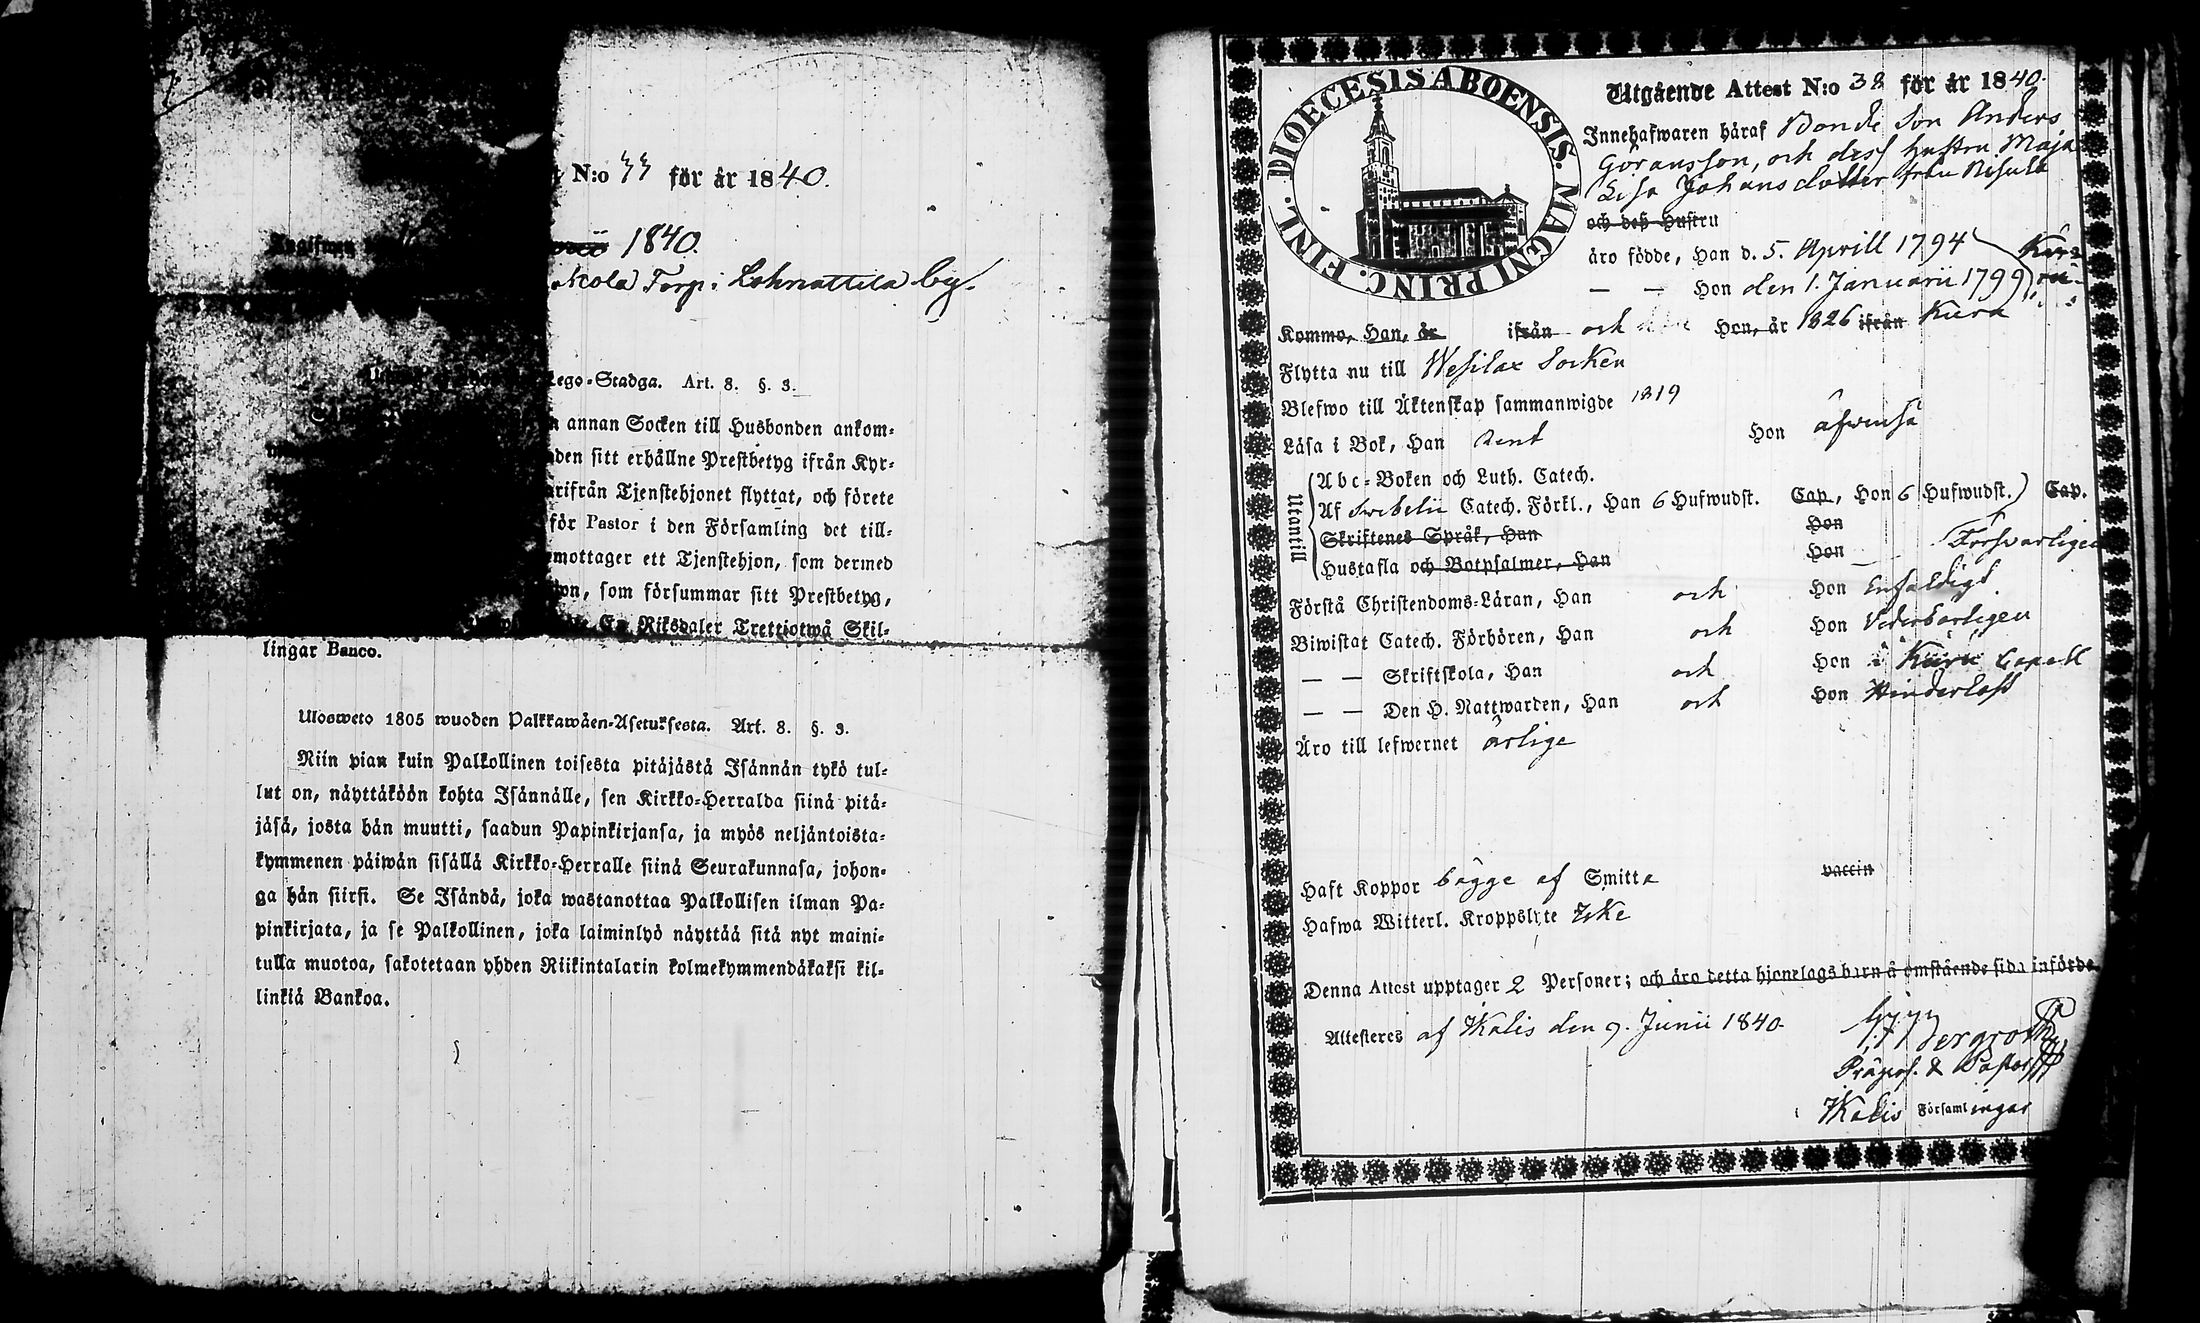 N:o 44 för år 1840.
1840.
Torp i Lohnattila by.
Lego-Stadga. Art. 8. §. 3.
annan Socken till Husbonden ankom-
den sitt erhållne Prestbetyg ifrån Kyr-
rifrån Tjenstehjonet flyttat, och förete
för Pastor i den Församling det till-
mottager ett Tjenstehjon, som dermed
on, som försummar sitt Prestbetyg,
En Riksdaler Trettiotwå Skil-
lingar Banco.
Ulosweto 1805 wuoden Palkkawäen-Asetuksesta. Art. 8. §. 3.
Niin pian kuin Palkollinen toisesta pitäjästä Isännän tykö tul-
lut on, näyttäköön kohta Isännälle, sen Kirkko-Herralda siinä pitä-
jäsä, josta hän muutti, saadun Papinkirjansa, ja myös neljäntoista-
kymmenen päiwän sisällä Kirkko-Herralle siinä Seurakunnasa, johon-
ga hän siirsi. Se Isändä, joka wastanottaa Palkollisen ilman Pa-
pinkirjata, ja se Palkollinen, joka laiminlyö näyttää sitä nyt maini-
tulla muotoa, sakotetaan yhden Riikintalarin kolmekymmendäkaksi kil-
linkiä Bankoa.
DIOECESIS ABOENSIS. MAGNI PRINC. FINL.
Utgående Attest N:o 38 för år 1840.
Innehafwaren häraf Bonde Son Anders
Göransson, och dess hustru Maja
Lisa Johansdotter från Risula
och deß Hustru
äro födde, Han d. 5. Aprill 1794
— — Hon den 1. Januarii 1799
Komme, Han, år ifrån och Hon, år 1826 ifrån Kuru
Flytta nu till Wesilax Socken
Blefwo till Äktenskap sammanwigde 1819
Läsa i Bok, Han Rent Hon äfwenså
Utantill
Abc-Boken och Luth. Catech.
Af Swebelii Catech. Förkl., Han 6 Hufwudst. Cap., Hon 6 Hufwudst. Cap.
Skriftenes Språk, Han Hon
Hustafla och Botpsalmer, Han Hon Försvarligen
Förstå Christendoms-Läran, Han och Hon Enfaldigt
Biwistat Catech. Förhören, Han och Hon Vederbörligen
— — Skriftskola, Han och Hon i Kuru Capell
— — Den H. Nattwarden, Han och Hon Hinderlöst
Äro till lefwernet ärlige
Haft Koppor bägge af Smitta vaccin
Hafwa Witterl. Kroppslyte Icke
Denna Attest upptager 2 Personer; och äro detta hjonelags barn å omstående sida införde.
Attesteres af Ikalis den 9. Junii 1840.
Bergroth
Präpos. & Pastor
Ikalis Församlingar